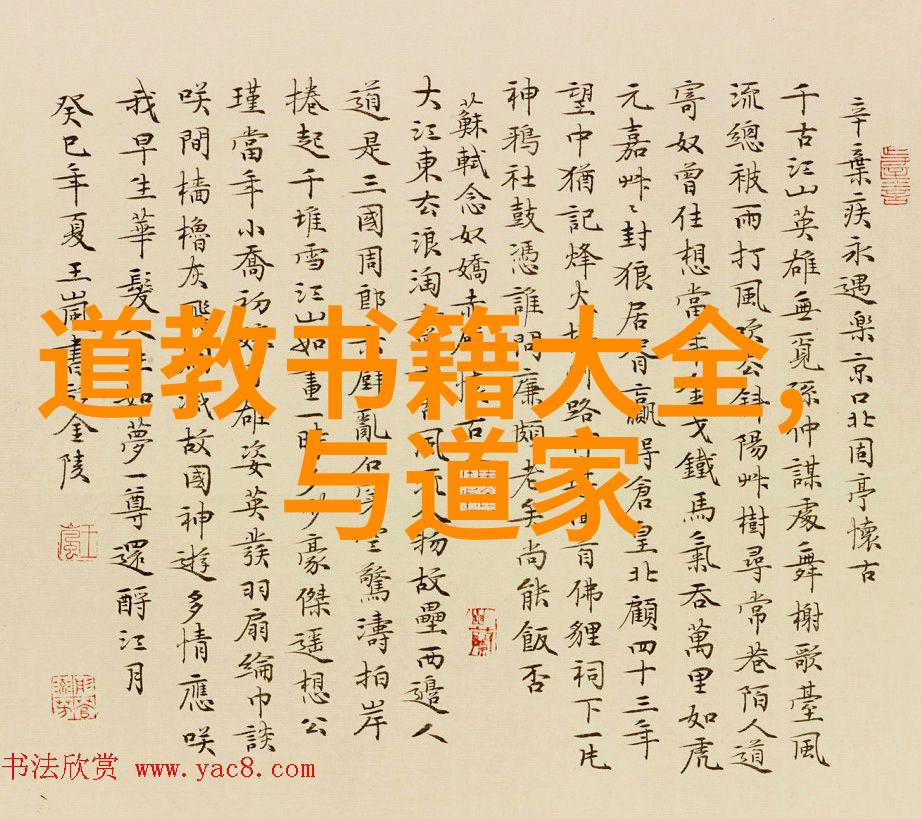 道教书籍大全,
与道家
辛棄疾永遇樂京口北固亭懷古
千古江山英雄無覓孫仲謀處舞榭歌臺風
流總被雨打風吹去斜陽艸樹尋常巷陌人道
寄奴曾住想當年戈鐵馬氣吞萬里如虎
元嘉艸〻封狼居胥贏得倉皇北顧四十三年
望中猶記烽火路首佛貍祠下一片
神鴉社鼓憑誰問廉頗老矣尚能飯否
蘇軾念奴嬌赤壁懷古
大江東去浪淘風物故壘西邊人
道是三國周郎赤壁亂石空驚濤拍岸
捲起千堆雪江山如畫一時多少豪傑遥想公
瑾當年小喬初雄姿英發羽扇綸巾談
咲間檣櫓灰飛滅故國神遊多情應咲
我早生華髮生如夢一尊還酹江月
癸巳年夏王嵐書金陵
书法欣赏 www.yac8.com